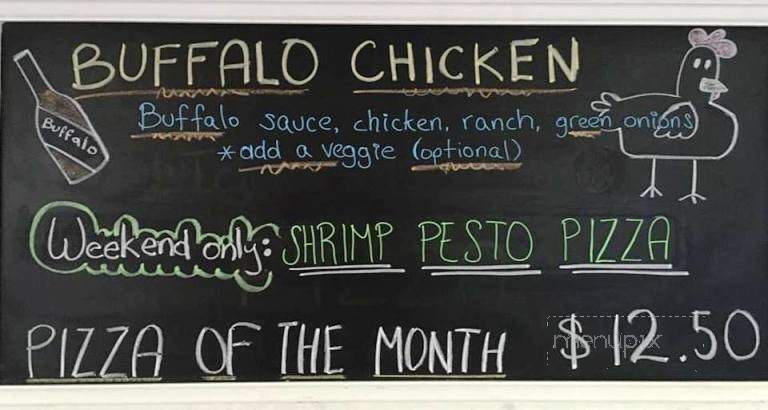 BUFFALO CHICKEN
Buffalo
Buffalo sauce, chicken, ranch, green onions
*add a veggie (optional)
Weekend only: SHRIMP PESTO PIZZA
PIZZA OF THE MONTH $12.50
menupix